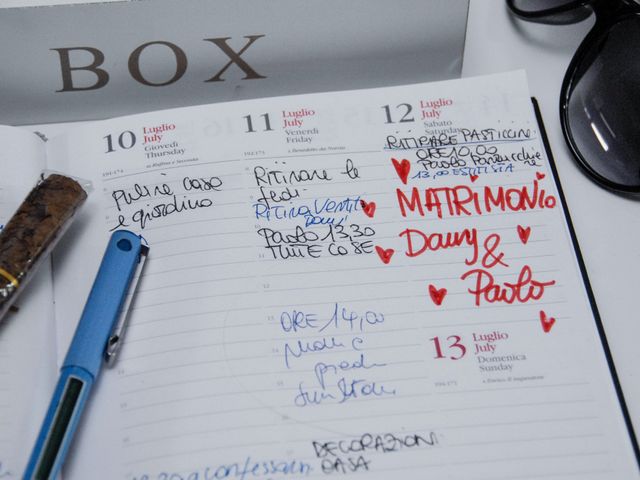 BOX
10 Luglio
July
Giovedì
Thursday
191-174
pulire casa
e giardino
11 Luglio
July
Venerdì
Friday
192-173
s. Benedetto da Norcia
Ritirare le
fedi
Ritiro Vestito
Damy
Paolo 13,30
TUTTE COSE
ORE 14,00
mani e
piedi
DECORAZIONI
CASA
12 Luglio
July
Sabato
Saturday
RITIRARE PASTICCINI
ORE 10,00
Paolo Parrucchiere
13,00 ESTETISTA
MATRIMONIO
Damy
&
Paolo
13 Luglio
July
Domenica
Sunday
194-171
s. Enrico il imperatore